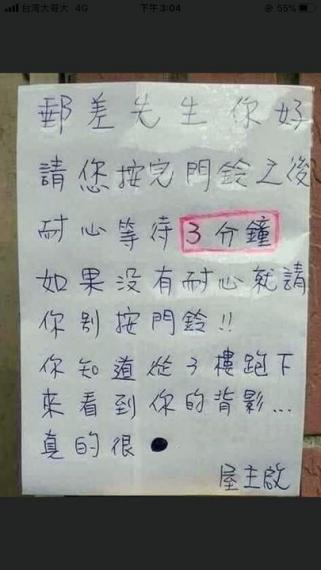 台湾大哥大 4G 下午3:04 55%
郵差先生你好
請您按完門鈴之後
耐心等待3分鐘
如果没有耐心就請
你別按門鈴!!
你知道從3樓跑下
來看到你的背影...
真的很●
屋主啟